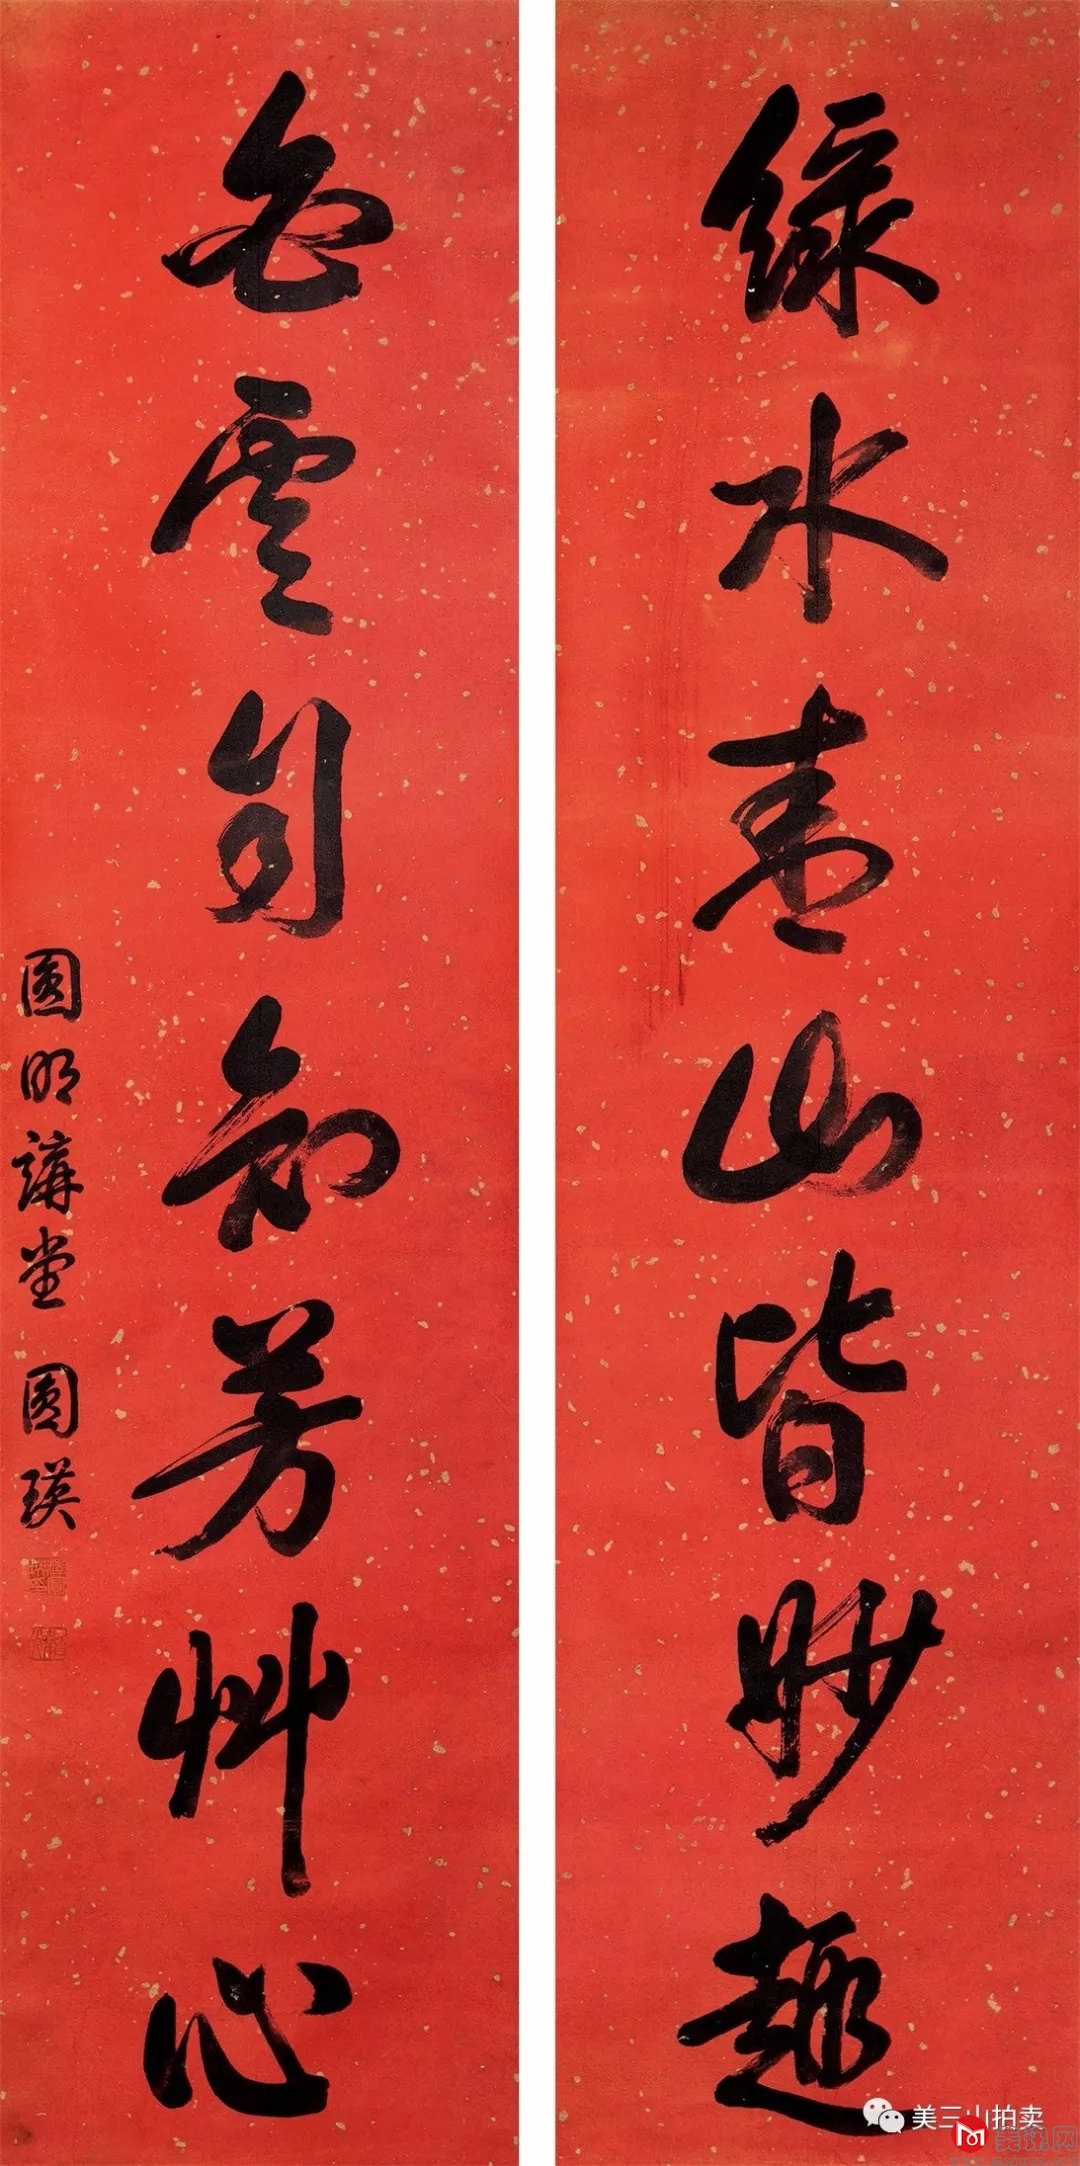 綠水青山皆妙趣
白雲自知芳艸心
圓明講堂 圓瑛
美三山拍卖
美讯网